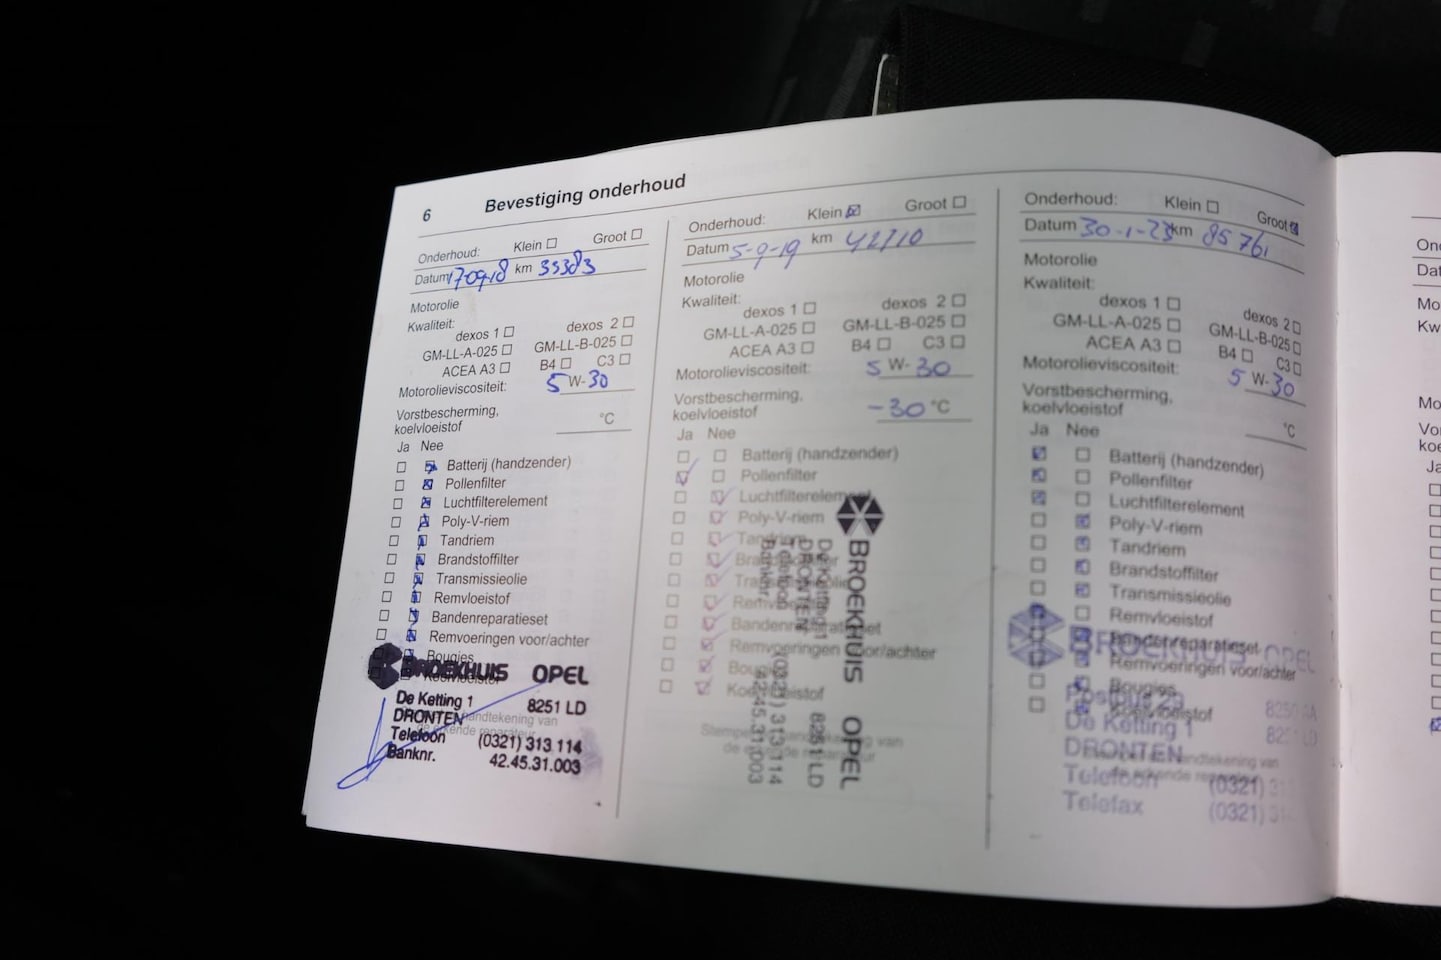 6 Bevestiging onderhoud
Onderhoud: Klein Groot
Datum 170918 km 35383
Motorolie
Kwaliteit:
dexos 1 dexos 2
GM-LL-A-025 GM-LL-B-025
ACEA A3 B4 C3
Motorolieviscositeit: 5 W-30
Vorstbescherming,
koelvloeistof °C
Ja Nee
Batterij (handzender)
Pollenfilter
Luchtfilterelement
Poly-V-riem
Tandriem
Brandstoffilter
Transmissieolie
Remvloeistof
Bandenreparatieset
Remvoeringen voor/achter
Bougies
Koelvloeistof
BROEKHUIS OPEL
De Ketting 1 8251 LD
DRONTEN
Telefoon (0321) 313 114
Banknr. 42.45.31.003
Onderhoud: Klein Groot
Datum 5-9-19 km 42710
Motorolie
Kwaliteit:
dexos 1 dexos 2
GM-LL-A-025 GM-LL-B-025
ACEA A3 B4 C3
Motorolieviscositeit: 5 W-30
Vorstbescherming,
koelvloeistof -30 °C
Ja Nee
Batterij (handzender)
Pollenfilter
Luchtfilterelement
Poly-V-riem
Tandriem
Brandstoffilter
Transmissieolie
Remvloeistof
Bandenreparatieset
Remvoeringen voor/achter
Bougies
Koelvloeistof
Stempel en handtekening van
de erkende reparateur
BROEKHUIS OPEL
De Ketting 1 8251 LD
DRONTEN
Telefoon (0321) 313 114
Banknr. 42.45.31.003
Onderhoud: Klein Groot
Datum 30-1-23 km 85761
Motorolie
Kwaliteit:
dexos 1 dexos 2
GM-LL-A-025 GM-LL-B-025
ACEA A3 B4 C3
Motorolieviscositeit: 5 W-30
Vorstbescherming,
koelvloeistof °C
Ja Nee
Batterij (handzender)
Pollenfilter
Luchtfilterelement
Poly-V-riem
Tandriem
Brandstoffilter
Transmissieolie
Remvloeistof
Bandenreparatieset
Remvoeringen voor/achter
Bougies
Koelvloeistof
BROEKHUIS OPEL
Postbus
De Ketting 1
DRONTEN
Telefoon (0321)
Telefax (0321)